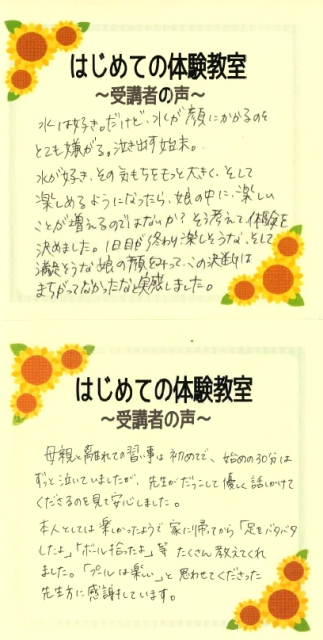 はじめての体験教室
～受講者の声～
水は好き。だけど、水が顔にかかるのを
とても嫌がる。泣き出す始末。
水が好き、その気もちをもっと大きく、そして
楽しめるようになったら、娘の中に、楽しい
ことが増えるのではないか？そう考えて体験を
決めました。1日目が終わり楽しそうな、そして
満足そうな娘の顔をみて、この決断は
まちがってなかったなと実感しました。
はじめての体験教室
～受講者の声～
母親と離れての習い事は初めてで、始めの30分は
ずっと泣いていましたが、先生がだっこして優しく話しかけて
くださるのを見て安心しました。
本人としては楽しかったようで家に帰ってから「足をバタバタ
したよ」「ボール拾ったよ」等たくさん教えてくれ
ました。「プールは楽しい」と思わせてくださった
先生方に感謝しています。